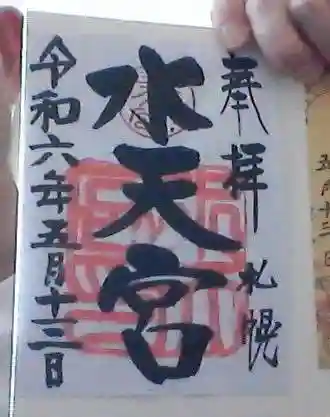 奉拝 札幌
水天宮
令和六年五月十三日